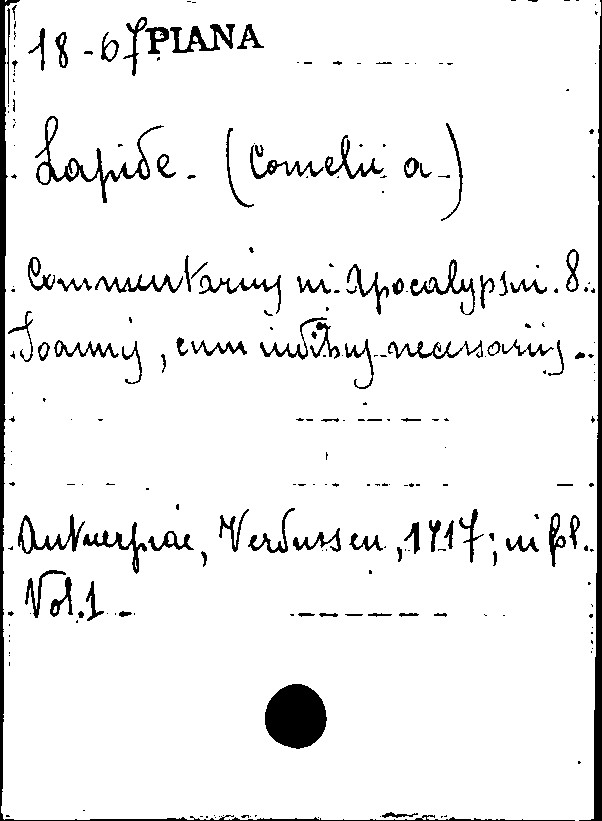 18-67 PIANA
Lapide - (Cornelii a -)
Commentarius in Apocalypsin. S.
Joannis, cum indicibus necessariis -
Antuerpiae, Verdussen, 1717; in fol.
Vol. 1 -